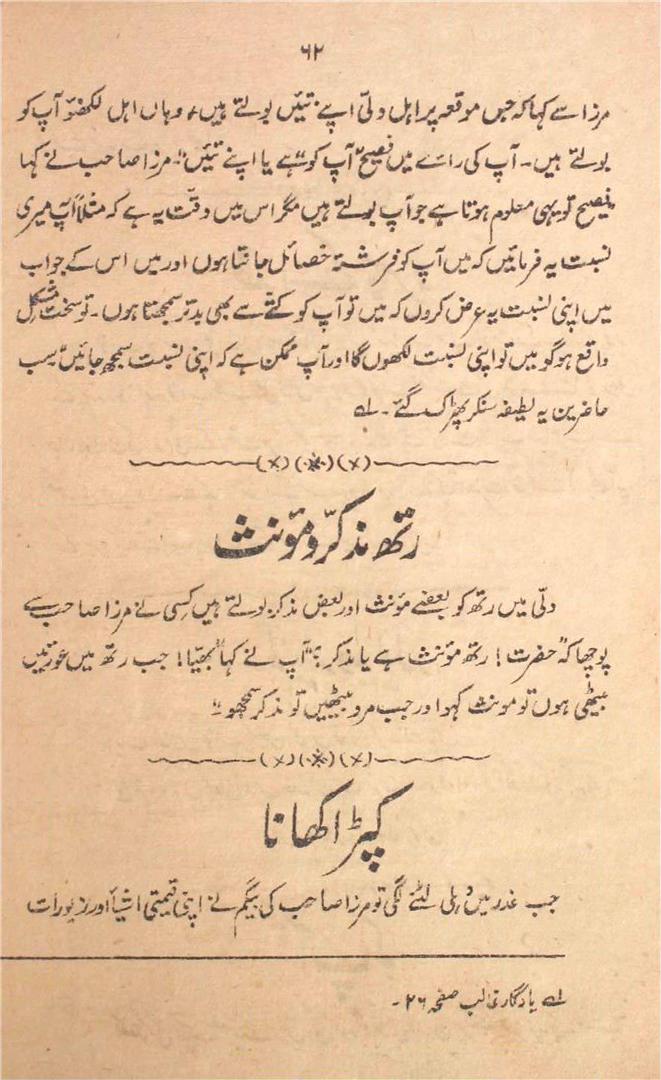 ۶۲
مرزا سے کہا کہ جس موقعہ پر اہل دلّی اپنے تئیں بولتے ہیں، وہاں اہل لکھنؤ آپ کو
بولتے ہیں۔ آپ کی رائے میں فصیح "آپ کو" ہے یا اپنے تئیں"۔ مرزا صاحب نے کہا
فصیح تو یہی معلوم ہوتا ہے جو آپ بولتے ہیں مگر اس میں دقّت یہ ہے کہ مثلاً آپ میری
نسبت یہ فرمائیں کہ میں آپ کو فرشتہ خصائل جانتا ہوں اور میں اس کے جواب
میں اپنی نسبت یہ عرض کروں کہ میں تو آپ کو کتے سے بھی بدتر سمجھتا ہوں۔ تو سخت مشکل
واقع ہوگو میں تو اپنی نسبت لکھوں گا اور آپ ممکن ہے کہ اپنی نسبت سمجھ جائیں" سب
حاضرین یہ لطیفہ سنکر پھڑک گئے۔ لہ
رتھ مذکّر و مؤنث
دلّی میں رتھ کو بعضے مؤنث اور بعض مذکر بولتے ہیں کسی نے مرزا صاحب سے
پوچھا کہ "حضرت! رتھ مؤنث ہے یا مذکر؟" آپ نے کہا "بھیّا! جب رتھ میں عورتیں
بیٹھی ہوں تو مونث کہو اور جب مرد بیٹھیں تو مذکر سمجھو"۔
کپڑا کھانا
جب غدر میں دہلی لٹنے لگی تو مرزا صاحب کی بیگم نے اپنی قیمتی اشیأ اور زیورات
لہ یادگار غالب صفحہ ۲۶۔